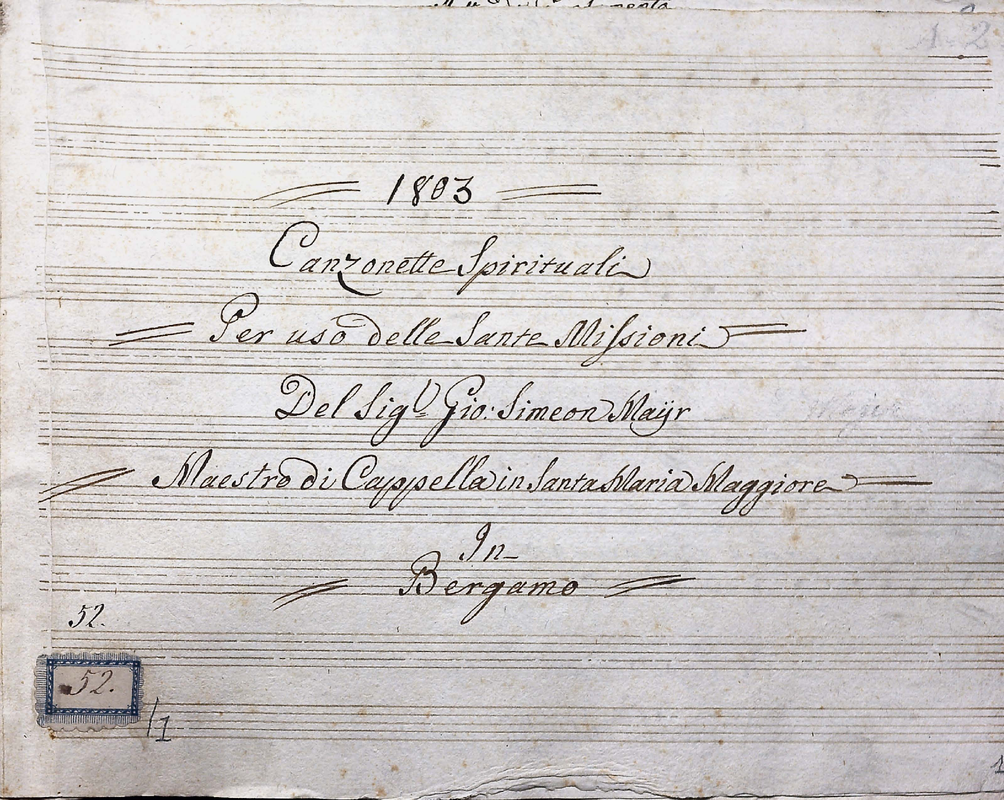 1803
Canzonette Spirituali
Per uso delle Sante Missioni
Del Sig.r Gio: Simeon Maÿr
Maestro di Cappella in Santa Maria Maggiore
In
Bergamo
52.
52.
/1
1